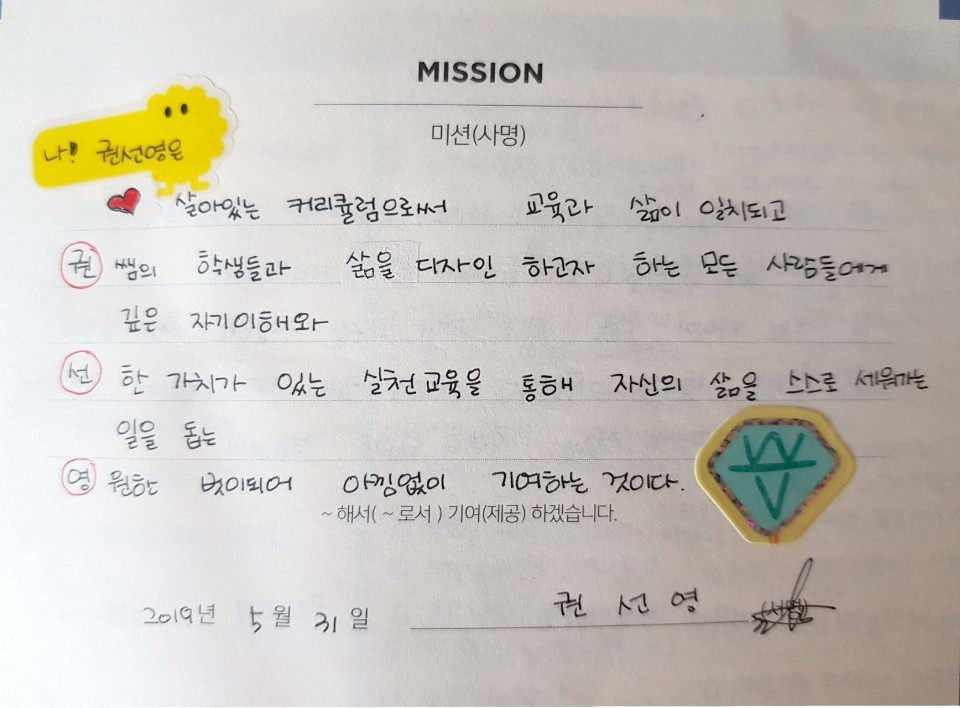 MISSION
미션(사명)
나! 권선영은
살아있는 커리큘럼으로써 교육과 삶이 일치되고
권 쌤의 학생들과 삶을 디자인 하고자 하는 모든 사람들에게
깊은 자기이해와
선 한 가치가 있는 실천교육을 통해 자신의 삶을 스스로 세워가는
일을 돕는
영 원한 벗이되어 아낌없이 기여하는 것이다.
~ 해서( ~ 로서 ) 기여(제공) 하겠습니다.
2019년 5월 31일 권 선 영